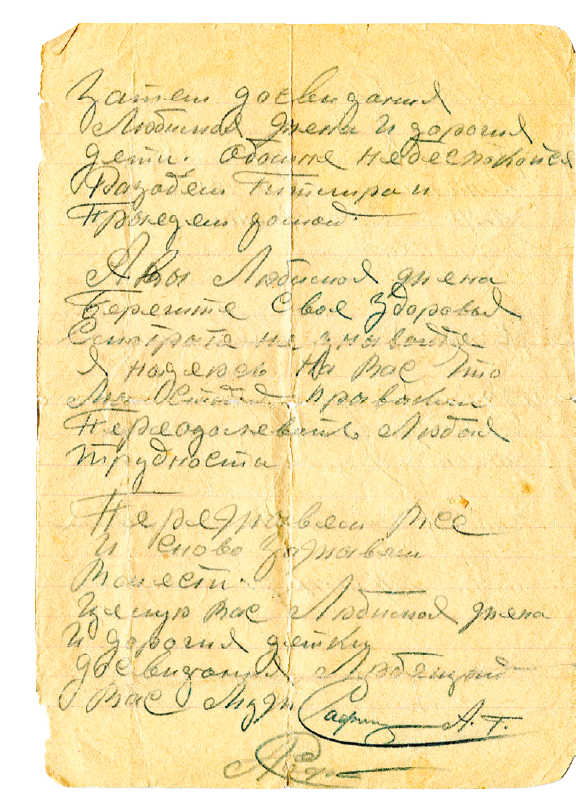 Затем досвидания
Любимая жена и дорогия
дети. обомне небеспокойся
Разобем Гитлира и
Прыедем домой.
А вы Любимая жена
Берегите Свое здоровья
Смотрите не унывайте
Я надеюсь на Вас что
Мы
Переодолевать Любой
трудности
Переживем Все
и снова заживем
Вместе.
Целую Вас Любимая жена
И дорогия детки
досвидания Любящий
Вас Муж Сафин А. Г.